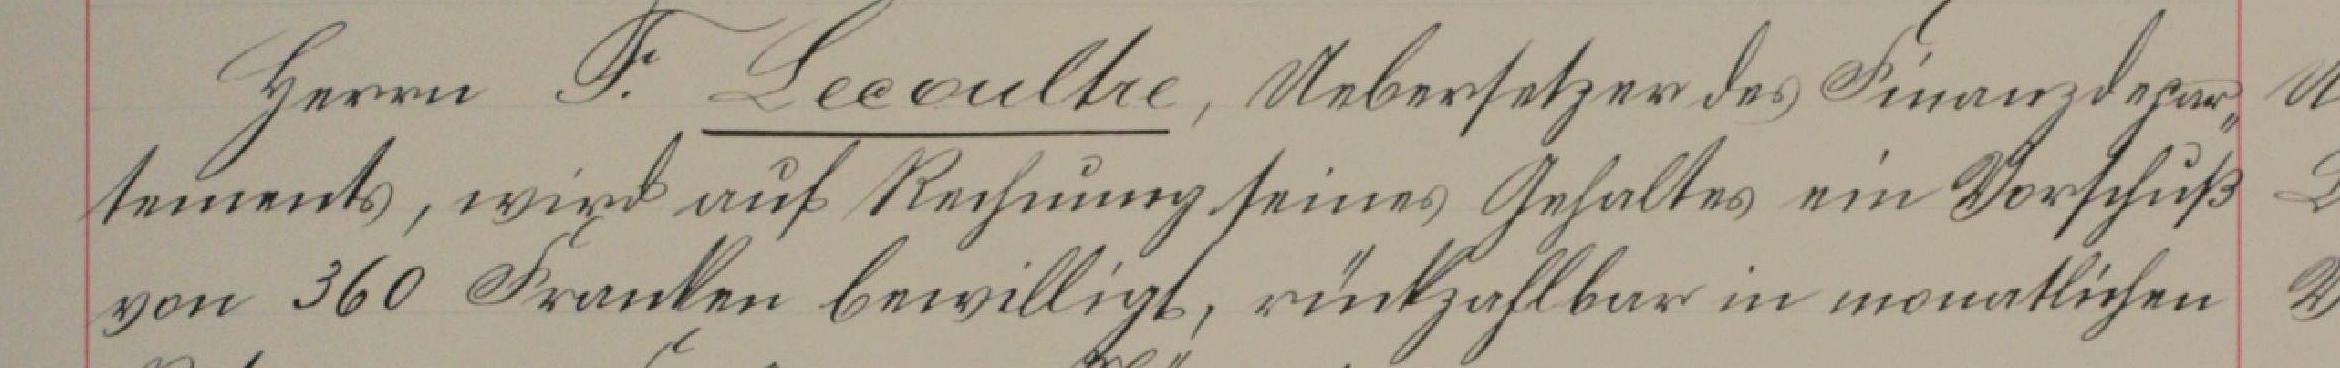 Herrn F. Lecoultre, Uebersetzer des Finanzdepar„
tements, wird auf Rechnung seines Gehaltes ein Vorschuß
von 360 Franken bewilligt, rückzahlbar in monatlichen